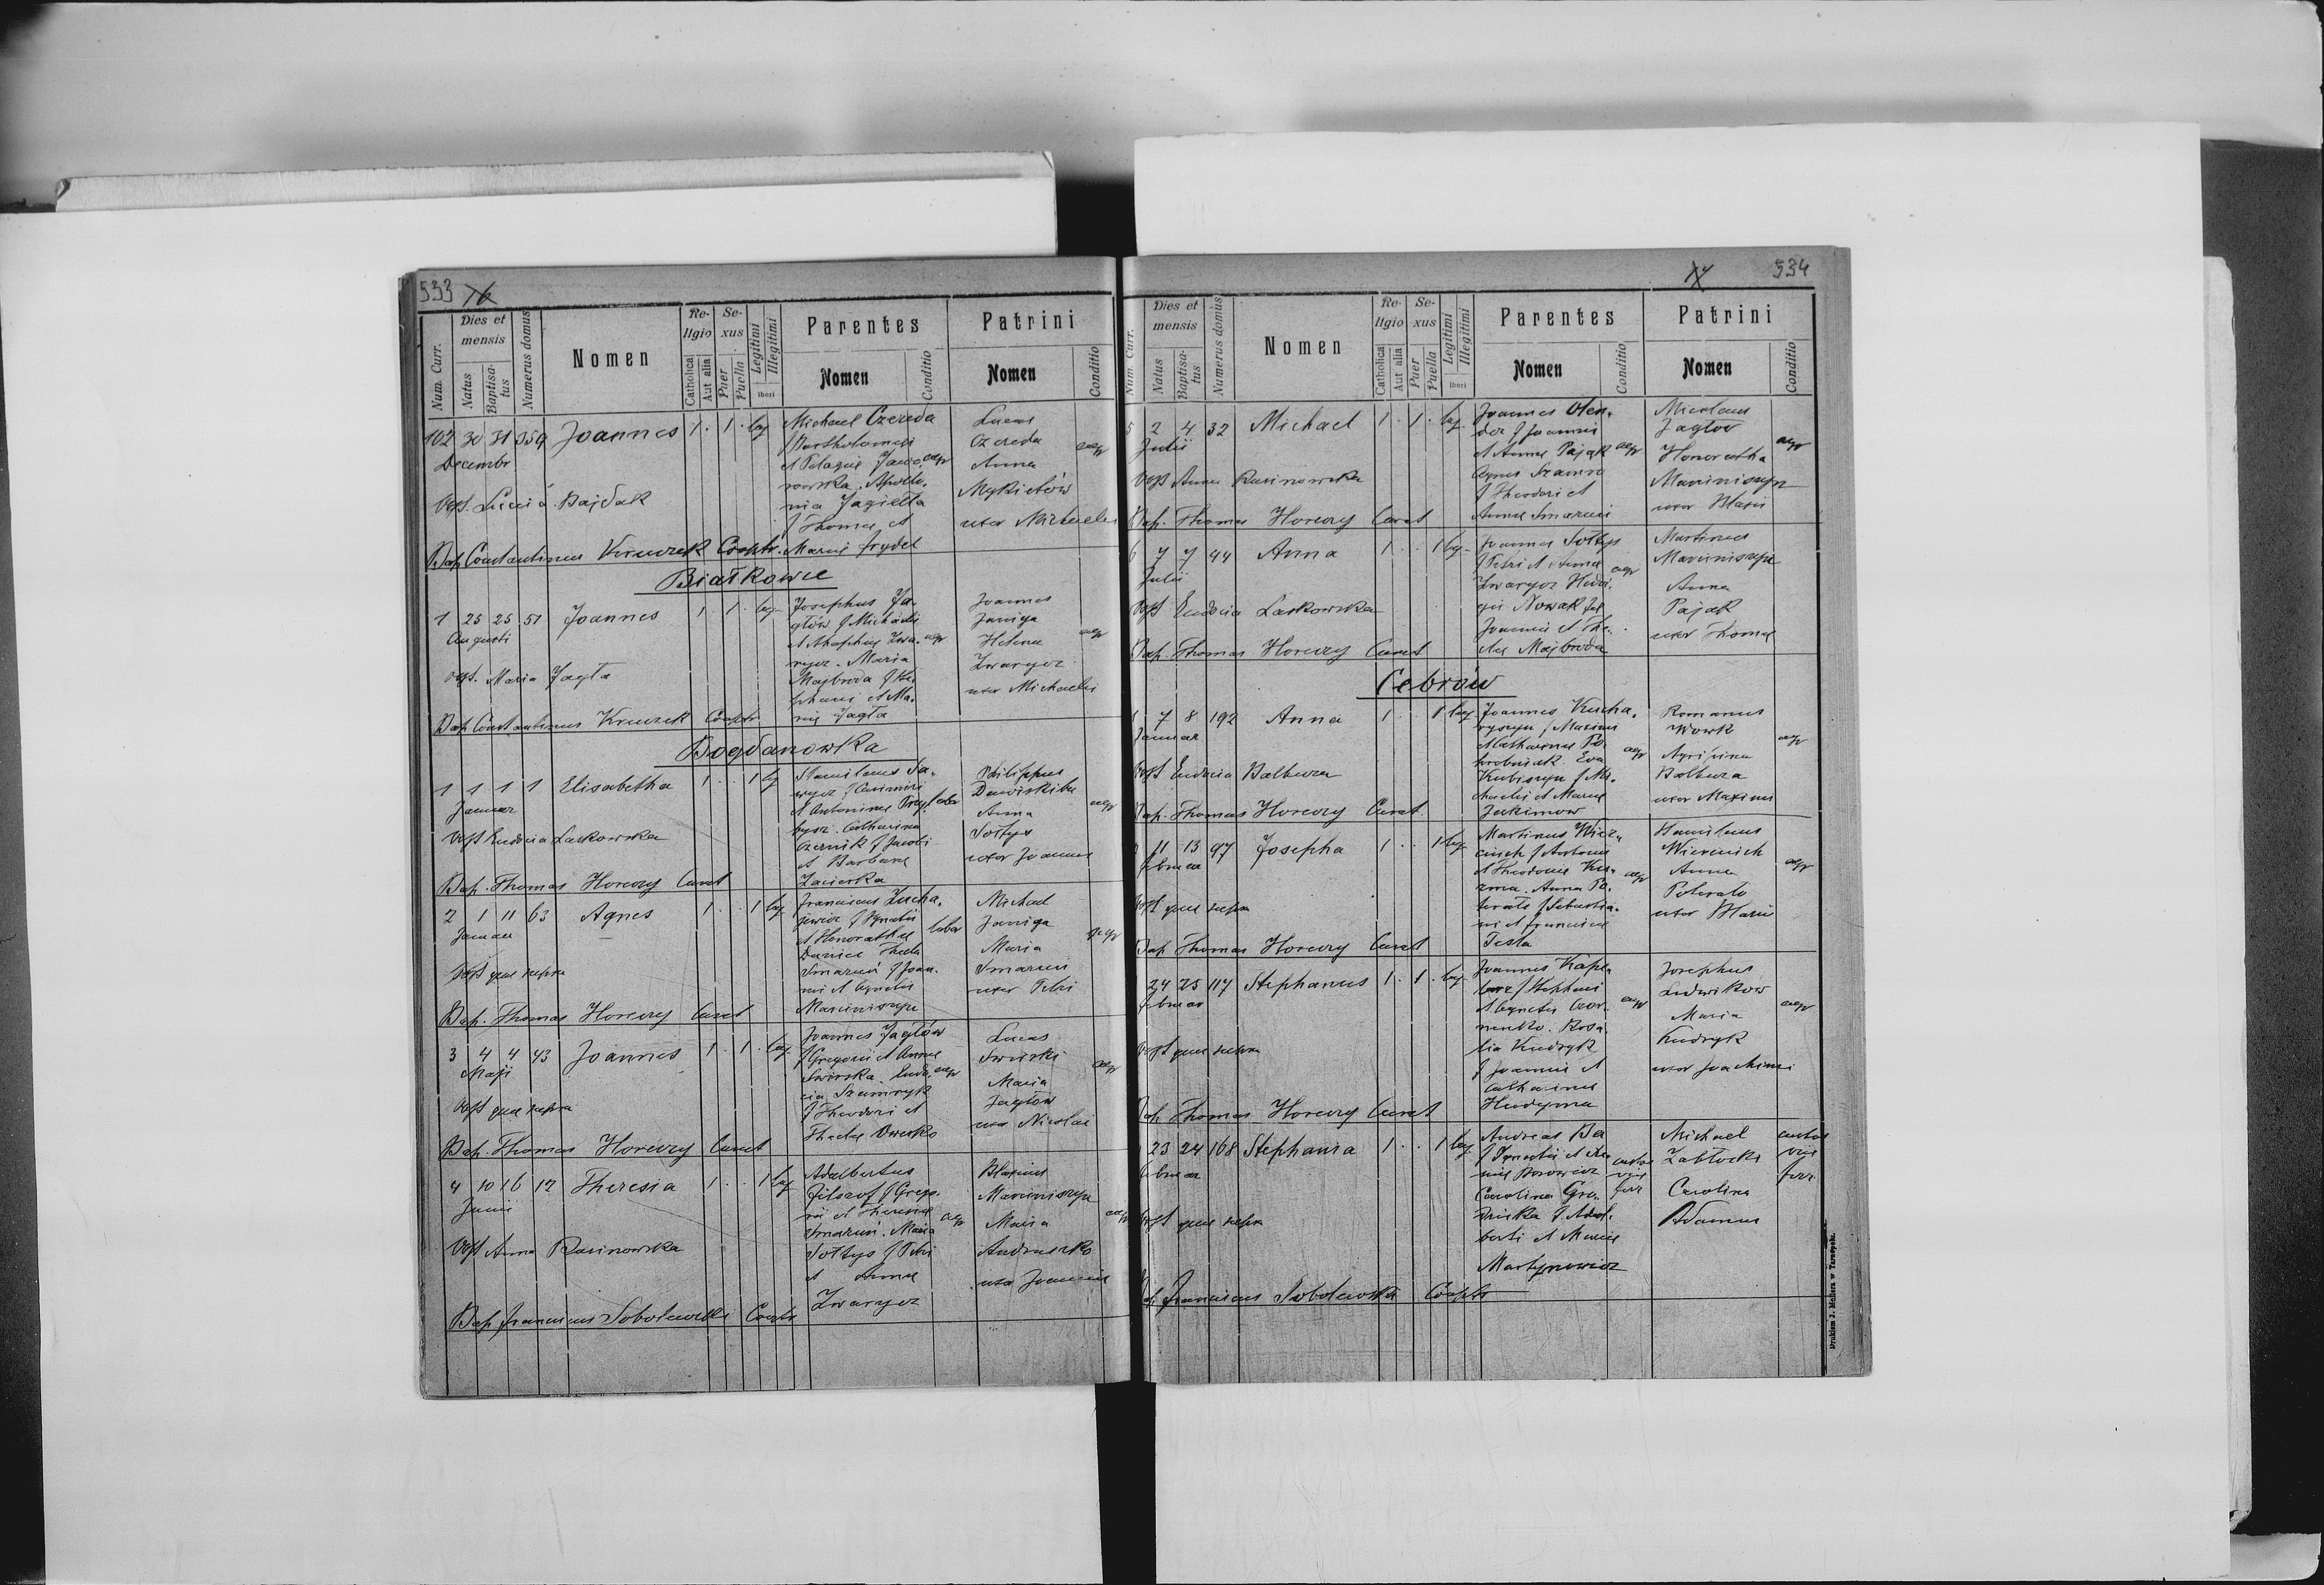 533
Num. Curr.
Dies et mensis
Natus
Baptisatus
Numerus domus
Nomen
Religio
Catholica
Aut alia
Sexus
Puer
Puella
Legitimi
Illegitimi
thori
Parentes
Nomen
Conditio
Patrini
Nomen
Conditio
102 30 31 359 Joannes 1 . 1 . leg
Decembr
Michael Czereda
f Bartholomaei
et Pelagiae
Apollo-
nia Jagiełła
f Thomae et
Mariae Frydel
agr
Lucas
Czereda
Anna
Mykietów
uxor Michaelis
agr
Obst. Lucia Bajdak
Bap Constantinus Kruczek Cooptr.
Białkowce
1 25 25 51 Joannes 1 . 1 . leg
Augusti
Josephus Ja-
głów f Michaelis
et Agaphiae Zwa-
rycz. Maria
Majbroda f Ste-
phani et Ma-
riae Jagła
agr
Joannes
Janiga
Helena
Zwarycz
uxor Michaelis
agr
obst. Maria Jagła
Bap Constantinus Kruczek Cooptr
Bogdanowka
1 1 1 1 Elisabetha 1 . . 1 leg
Januar
Stanislaus Sa-
wycz f Casimiri
et Antoninae
Catharina
Czernik f Jacobi
et Barbarae
Zacierka
labor
Philippus
Anna
Sołtys
uxor Joannis
agr
Obst Eudocia Laskowska
Bap. Thomas Horeczy Curat
2 1 11 63 Agnes 1 . . 1 leg
Januar
Franciscus Zucha-
jewicz f Ignatii
et Honorathae
Thecla
Smaruń f Joan-
nis et Agnetis
Marciniszyn
labor
Michael
Janiga
Maria
Smaruń
uxor Petri
agr
Obst quae supra
Bap. Thomas Horeczy Curat
3 4 4 43 Joannes 1 . 1 . leg
Maji
Joannes Jagłów
f Gregorii et Annae
Świrska. Eudo-
cia Szumryk
f Theodori et
Theclae Owerko
agr
Lucas
Świrski
Maria
Jagłów
uxor Nicolai
agr
Obst quae supra
Bap. Thomas Horeczy Curat
4 10 16 12 Theresia 1 . . 1 leg
Junii
Adalbertus
Filozof f Grego-
rii et Theresiae
Smaruń. Maria
Sołtys f Petri
et Annae
Zwarycz
agr
Blasius
Marciniszyn
Maria
Andruszko
uxor Joannis
agr
Obst Anna Rasinowska
Bap Franciscus Sobolewski Cooptr
534
Num. Curr.
Dies et mensis
Natus
Baptisatus
Numerus domus
Nomen
Religio
Catholica
Aut alia
Sexus
Puer
Puella
Legitimi
Illegitimi
thori
Parentes
Nomen
Conditio
Patrini
Nomen
Conditio
5 2 4 32 Michael 1 . 1 . leg
Julii
Joannes Olen-
der f Joannis
et Annae Pająk
Agnes
f Theodori et
Annae Smaruń
agr
Nicolaus
Jagłów
Honoratha
Marciniszyn
uxor Blasii
agr
Obst Anna Rasinowska
Bap. Thomas Horeczy Curat
6 7 7 44 Anna 1 . . 1 leg
Julii
Joannes Sołtys
f Petri et Annae
Zwarycz
Nowak fil
Joannis et The-
clae Majbroda
agr
Martinus
Marciniszyn
Anna
Pająk
uxor Thomae
Obst Eudocia Laskowska
Bap. Thomas Horeczy Curat
Cebrów
1 7 8 192 Anna 1 . . 1 leg
Januar
Joannes Kucha-
ryszyn f Maximi
et Catharinae Po-
Eva
Kubiszyn f Mi-
chaelis et Mariae
Jakimow
agr
Romanus
Wowk
Agripina
Balbuza
uxor Maximi
agr
Obst Eudocia Balbuza
Bap. Thomas Horeczy Curat.
11 13 97 Josepha 1 . . 1 leg
Februar
Martinus Wier-
cinch f Antonii
et Theodorae Ku-
zma. Anna Po-
terało f Sebastia-
ni et Franciscae
Testa
agr
Stanislaus
Anna
Poterało
uxor Blasii
agr
Obst quae supra
Bap Thomas Horeczy Curat
24 25 117 Stephanus 1 . 1 . leg
Februar
Joannes Kapu-
f Stephani
et Agnetis Czor-
nenko. Rosa-
lia Kudryk
f Joannis et
Catharinae
Hudyma
agr
Josephus
Ludwikow
Maria
Kudryk
uxor Joachimi
agr
Obst quae supra
Bap. Thomas Horeczy Curat
23 24 168 Stephania 1 . . 1 leg
Februar
Andreas Ba
f Ignatii et
Borowicz
Carolina Gru-
f Adal-
berti et Mariae
Martynowicz
custos
viae
ferr
Michael
Zabłocki
Carolina
Adamus
custos
viae
ferr
Obst quae supra
Bap Franciscus Sobolewski Cooptr
Drukiem J. Mellera w Tarnopolu.